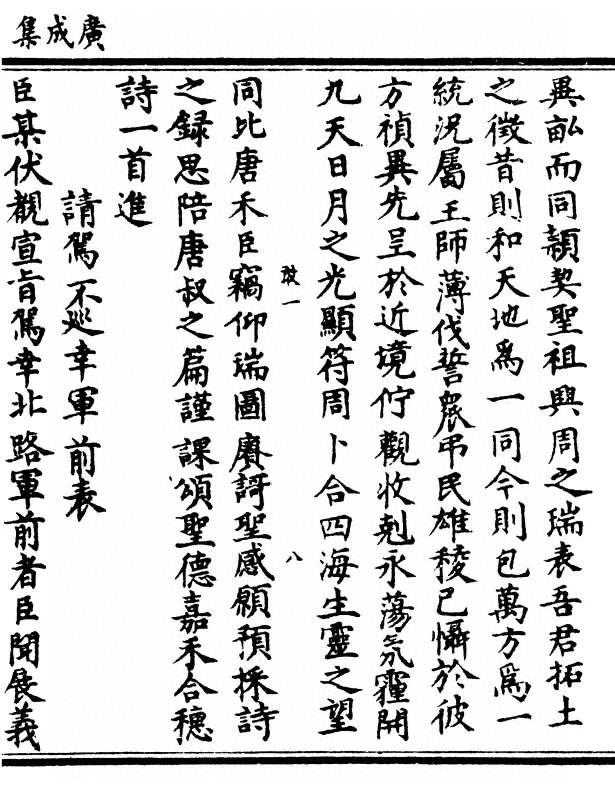 廣成集
異畝而同穎契聖祖興周之瑞表吾君拓土
之徵昔則和天地爲一同今則包萬方爲一
統況屬王師薄伐誓衆弔民雄稜已懾於彼
方禎異先呈於近境佇觀收剋永蕩氛霾開
九天日月之光顯符周卜合四海生靈之望
𢽾一
八
同比唐禾臣竊仰瑞圖賡謌聖感願預採詩
之録思陪唐叔之篇謹課頌聖德嘉禾合穗
詩一首進
請駕不巡幸軍前表
臣某伏覩宣旨駕幸北路軍前者臣聞展義